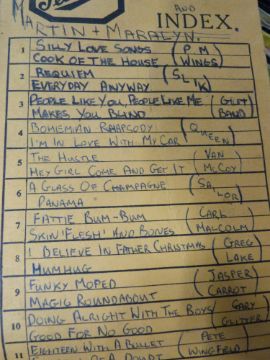 AND
INDEX.
MARTIN + MARALYN.
1 SILLY LOVE SONGS (P M
COOK OF THE HOUSE (WINGS)
2 REQUIEM (SLIK)
EVERYDAY ANYWAY
3 PEOPLE LIKE YOU, PEOPLE LIKE ME (GLITT
MAKES YOU BLIND BAND)
4 BOHEMIAN RHAPSODY (QUEEN)
I'M IN LOVE WITH MY CAR
5 THE HUSTLE (VAN
HEY GIRL COME AND GET IT (MCCOY
6 A GLASS OF CHAMPAGNE (SAILOR)
PANAMA
7 FATTIE BUM-BUM (CARL
SKIN 'FLESH' AND BONES (MALCOLM)
8 I BELIEVE IN FATHER CHRISTMAS (GREG
HUMBUG LAKE)
9 FUNKY MOPED (JASPER
MAGIC ROUNDABOUT CARROT)
10 DOING ALRIGHT WITH THE BOYS (GARY
GOOD FOR NO GOOD GLITTER)
11 EIGHTEEN WITH A BULLET (PETE
OF A DOUBT WINGFIELD)